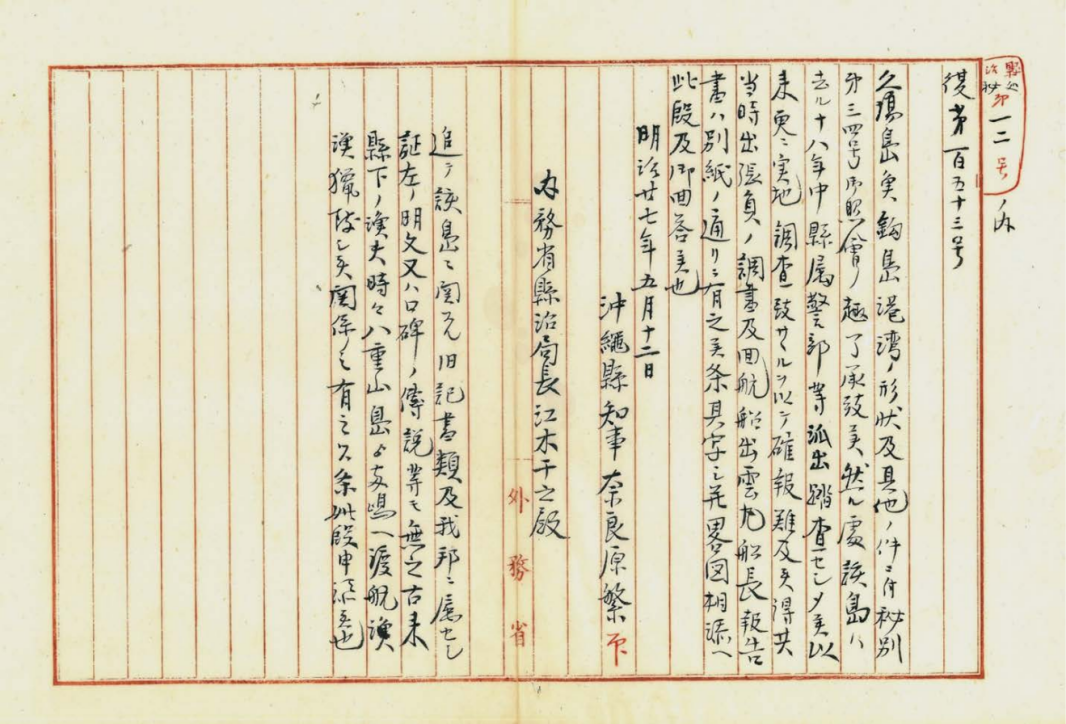 縣治秘第一二号ノ内
復第百五十三号
久場島魚釣島港湾ノ形状及其他ノ件ニ付秘別
第三四号御照會ノ趣了承致候然ル處該島ハ
去ル十八年中縣属警部等派出踏査セシメ候以
来更ニ実地調査致サヽルヲ以テ確報難及候得共
当時出張員ノ調書及回航船出雲丸船長報告
書ハ別紙ノ通リニ有之候条其写ニ並畧図相添ヘ
此段及御回答候也
明治廿七年五月十二日
沖繩縣知事奈良原繁印
内務省縣治局長江木干之殿
追テ該島ニ関スル旧記書類及我邦ニ属セシ
証左ノ明文又ハ口碑ノ傳説等モ無之古来
縣下ノ漁夫時々八重山島ヨリ両島ヘ渡航漁
漁猟致シ候関係ノミ有之候条此段申添候也
外務省